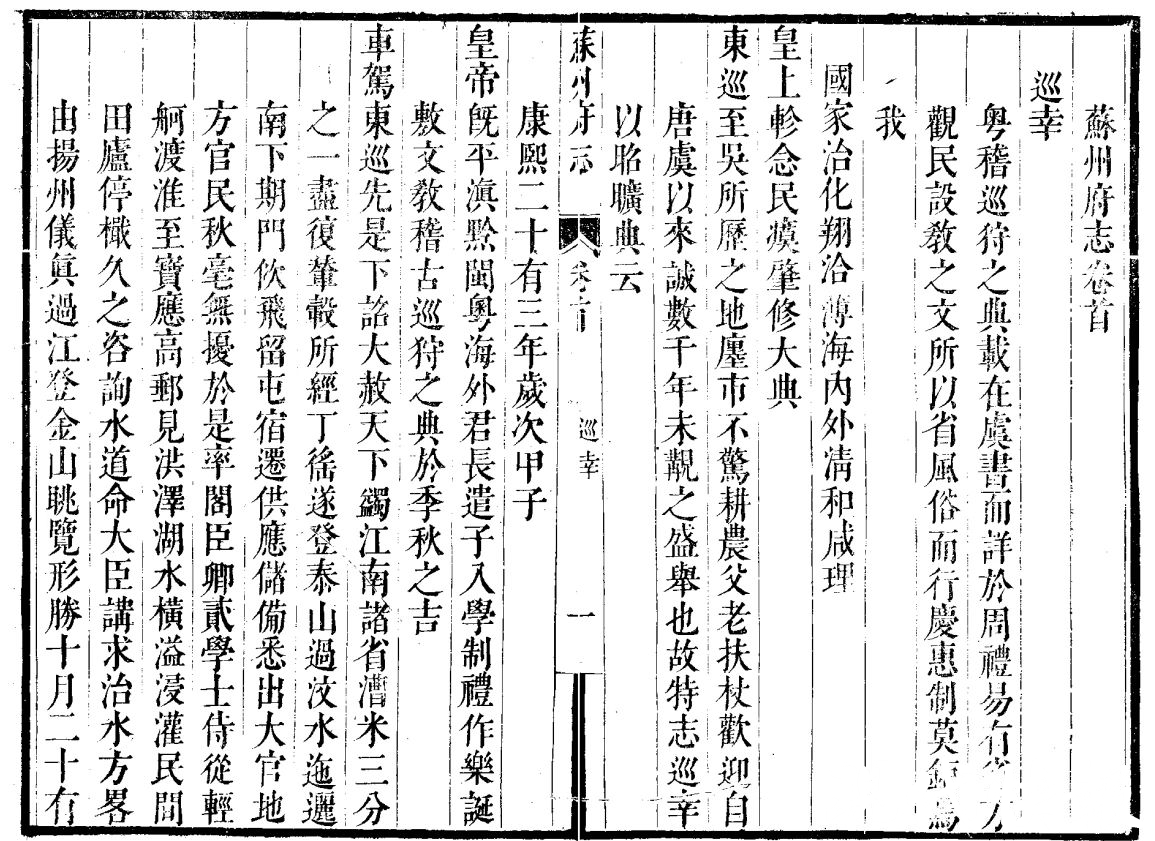 蘇州府志卷首
巡幸
粤稽巡狩之典載在虞書而詳於周禮易有省方
觀民設教之文所以省風俗而行慶惠制莫鉅焉
我
國家治化翔洽溥海內外清和咸理
皇上軫念民瘼肇修大典
東巡至吳所歷之地廛市不驚耕農父老扶杖歡迎自
唐虞以來誠數千年未覯之盛舉也故特志巡幸
以昭曠典云
蘇州府志 卷首 巡幸 一
康熙二十有三年歲次甲子
皇帝旣平滇黔閩粤海外君長遣子入學制禮作樂誕
敷文敎稽古巡狩之典於季秋之吉
車駕東巡先是下詔大赦天下蠲江南諸省漕米三分
之一盡復輦轂所經丁徭遂登泰山過汶水迤邐
南下期門佽飛留屯宿遷供應儲偹悉出大官地
方官民秋毫無擾於是率閣臣卿貳學士侍從輕
舸渡淮至寶應高郵見洪澤湖水橫溢浸灌民間
田廬停檝久之咨詢水道命大臣講求治水方畧
由揚州儀眞過江登金山眺覽形勝十月二十有